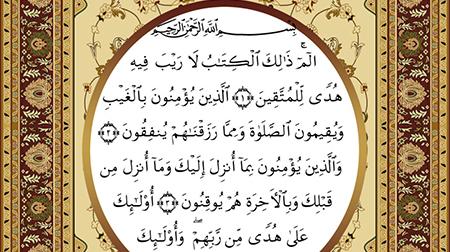 بِسْمِ اللَّهِ الرَّحْمَٰنِ الرَّحِيمِ
الٓمٓ ۚ ذَٰلِكَ ٱلْكِتَـٰبُ لَا رَيْبَ فِيهِ
هُدًى لِّلْمُتَّقِينَ ﴿١﴾ ٱلَّذِينَ يُؤْمِنُونَ بِٱلْغَيْبِ
وَيُقِيمُونَ ٱلصَّلَوٰةَ وَمِمَّا رَزَقْنَـٰهُمْ يُنفِقُونَ ﴿٢﴾
وَٱلَّذِينَ يُؤْمِنُونَ بِمَا أُنزِلَ إِلَيْكَ وَمَا أُنزِلَ مِن
قَبْلِكَ وَبِٱلْأَخِرَةِ هُمْ يُوقِنُونَ ﴿٣﴾ أُوْلَـٰٓئِكَ
عَلَىٰ هُدًى مِّن رَّبِّهِمْ ۖ وَأُوْلَـٰٓئِكَ